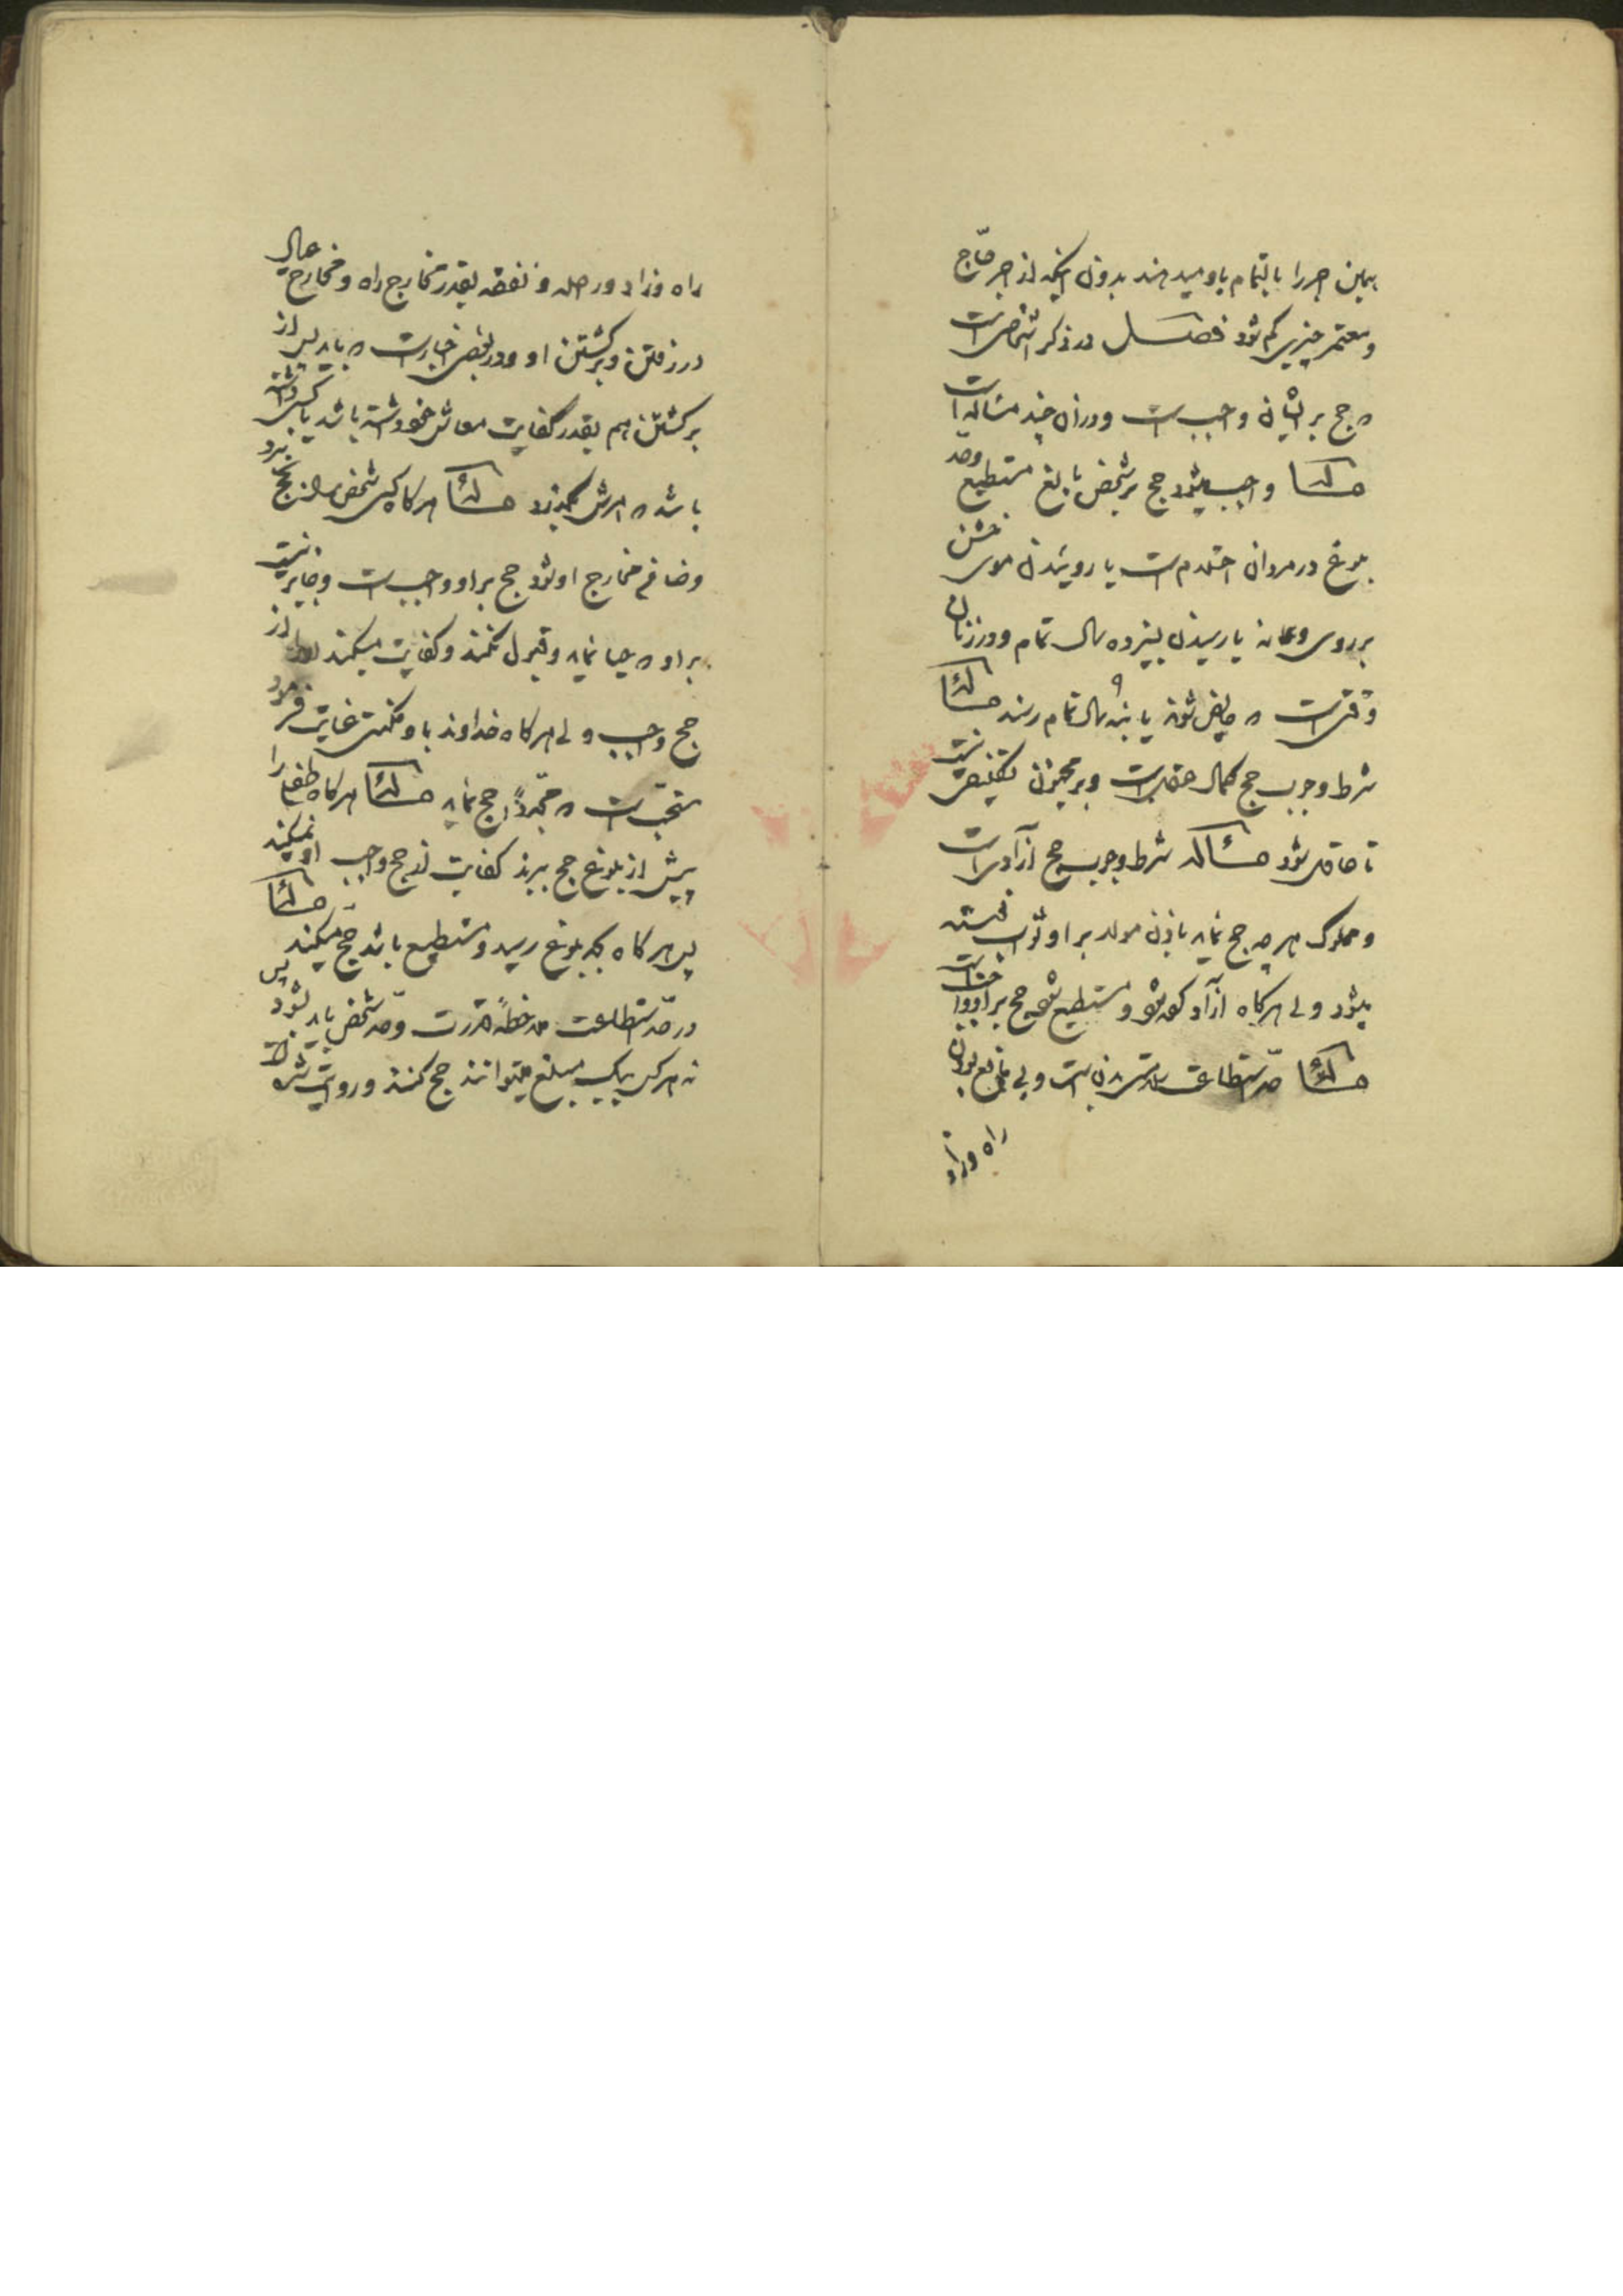 همین اجر را بالتمام باو میدهند بدون اینکه از اجر حاج
و معتمر چیزی کم شود فصل در ذکر اشخاصی است
که حج بر ایشان واجب است و در آن چند مساله است
مسئله واجب میشود حج بر شخص بالغ مستطیع و حد
بلوغ در مردان احتلام است یا روئیدن موی خشن
بر روی و عانه یا رسیدن بپانزده سال تمام و در زنان
وقتی است که حایض شوند یا بنه سال تمام رسند مسئله
شرط وجوب حج کمال عقلست و بر مجنون تکلیفی نیست
تا عاقل شود مسئله شرط وجوب حج آزادی است
و مملوک هر چه حج نماید باذن مولا بر او ثواب نوشته
میشود ولی هرگاه آزاد کرده شود و مستطیع شود حج بر او واجب است
مسئله حد استطاعت سلامتی بدن است و بی مانع بودن
راه و زاد
راه و زاد و راحله و نفقه بقدر مخارج راه و مخارج عیال
در رفتن و برگشتن او و در بعض اخبار است که باید پس از
برگشتن هم بقدر کفایت معاش خود داشته باشد یا کسبی داشته
باشد که امرش بگذرد مسئله هرگاه کسی شخص را بحج برد
و ضامن مخارج او شود حج بر او واجب است و جایز نیست
بر او که حیا نماید و قبول نکند و کفایت میکند از
حج واجب ولی هرگاه خداوند باو مکنتی عنایت فرمود
مستحب است که مجدداً حج نماید مسئله هرگاه طفل را
پیش از بلوغ حج ببرند کفایت از حج واجب او نمیکند
پس هرگاه بحد بلوغ رسید و مستطیع باشد حج میکند مسئله
در حد استطاعت ملاحظه قدرت و حد شخص باید بشود پس
نه هر کس بیک مبلغ میتوانند حج کنند و روایت شده